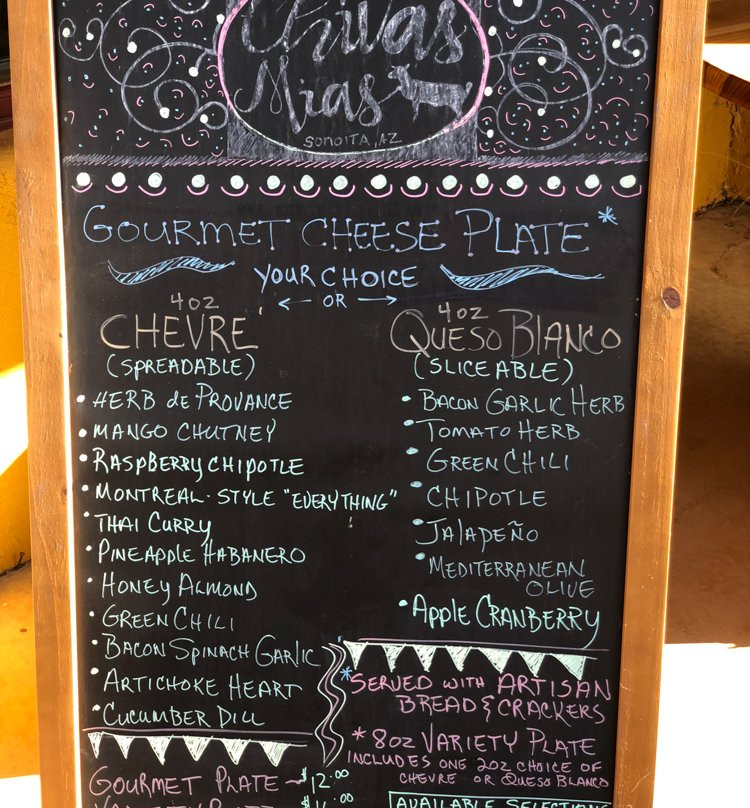 Chivas
Mias
SONOITA, AZ
GOURMET CHEESE PLATE*
YOUR CHOICE
← OR →
4oz
CHEVRE'
(SPREADABLE)
• HERB de PROVANCE
• MANGO CHUTNEY
• RASPBERRY CHIPOTLE
• MONTREAL-STYLE "EVERYTHING"
• THAI CURRY
• PINEAPPLE HABANERO
• HONEY ALMOND
• GREEN CHILI
• BACON SPINACH GARLIC
• ARTICHOKE HEART
• CUCUMBER DILL
4oz
QUESO BLANCO
(SLICEABLE)
• BACON GARLIC HERB
• TOMATO HERB
• GREEN CHILI
• CHIPOTLE
• JALAPEÑO
• MEDITERRANEAN
OLIVE
• APPLE CRANBERRY
*SERVED WITH ARTISAN
BREAD & CRACKERS
* 8oz VARIETY PLATE
INCLUDES ONE 2oz CHOICE OF
CHEVRE OR QUESO BLANCO
GOURMET PLATE ~ $12.00
AVAILABLE SELECTIONS